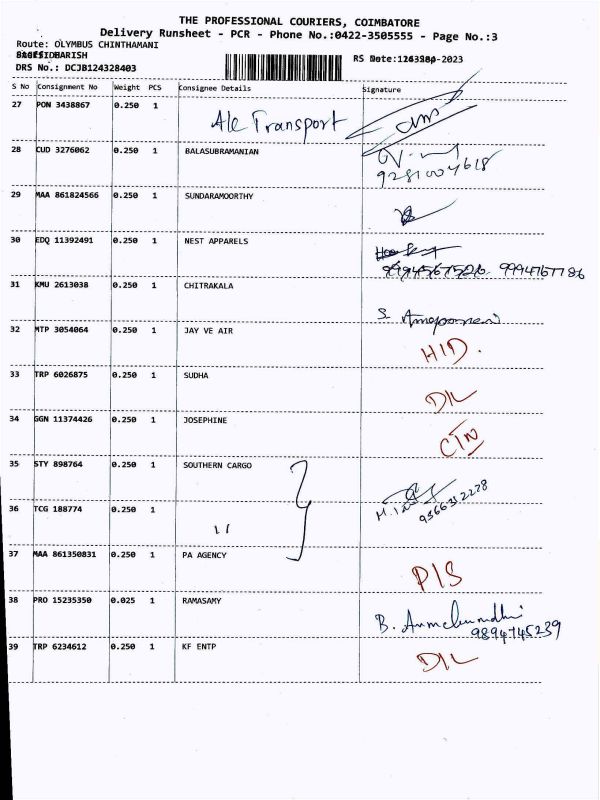 THE PROFESSIONAL COURIERS, COIMBATORE
Delivery Runsheet - PCR - Phone No.:0422-3505555 - Page No.:3
Route: OLYMBUS CHINTHAMANI
DRS No.: DCJB124328403
S No Consignment No Weight PCS Consignee Details Signature
27 PON 3438867 0.250 1 Ale Transport
28 CUD 3276062 0.250 1 BALASUBRAMANIAN
9281004618
29 MAA 861824566 0.250 1 SUNDARAMOORTHY
30 EDQ 11392491 0.250 1 NEST APPARELS
9994567526 9994767786
31 KMU 2613038 0.250 1 CHITRAKALA
32 MTP 3054064 0.250 1 JAY VE AIR
H/D.
33 TRP 6026875 0.250 1 SUDHA
D/L
34 GGN 11374426 0.250 1 JOSEPHINE
CTN
35 STY 898764 0.250 1 SOUTHERN CARGO
9366312228
36 TCG 188774 0.250 1 11
37 MAA 861350831 0.250 1 PA AGENCY
P/S
38 PRO 15235350 0.025 1 RAMASAMY
9894745239
39 TRP 6234612 0.250 1 KF ENTP
D/L